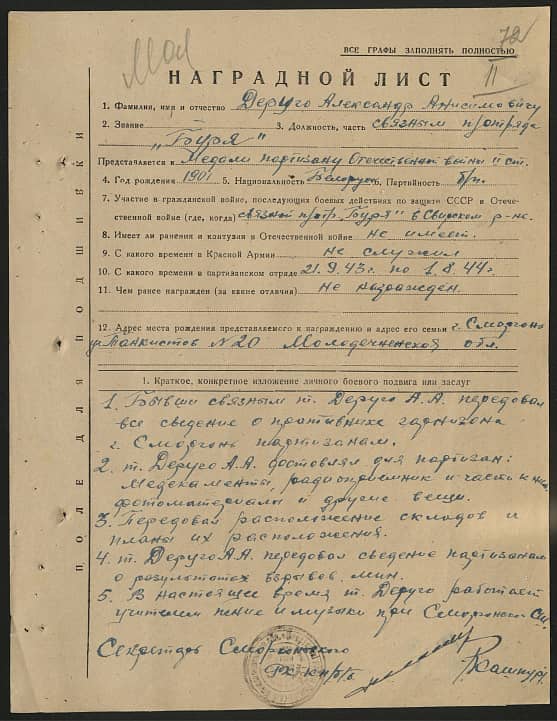 72
ВСЕ ГРАФЫ ЗАПОЛНЯТЬ ПОЛНОСТЬЮ
НАГРАДНОЙ ЛИСТ
II
1. Фамилия, имя и отчество Деруго Александр Анисимовичу
2. Звание 3. Должность, часть связным п/отряда
"Буря"
Представляется к Медали партизану Отечественной войны II ст.
4. Год рождения 1901 5. Национальность Белорус 6. Партийность б/п.
7. Участие в гражданской войне, последующих боевых действиях по защите СССР и Отече-
ственной войне (где, когда) связной п/отр. "Буря" в Свирском р-не.
8. Имеет ли ранения и контузии в Отечественной войне не имеет.
9. С какого времени в Красной Армии не служил
10. С какого времени в партизанском отряде 21.9.43г. по 1.8.44г.
11. Чем ранее награжден (за какие отличия) не награжден.
12. Адрес места рождения представляемого к награждению и адрес его семьи г. Сморгонь
ул Танкистов N 20 Молодечненской обл.
1. Краткое, конкретное изложение личного боевого подвига или заслуг
1. Бывши связным т. Деруго А.А. передовал
все сведение о противнике гарнизона
г. Сморгонь партизанам.
2. т. Деруго А.А. доставлял для партизан:
Медекаменты, радиоприемник и части к ним
фотоматериалы и другие вещи.
3. Передовал расположение складов и
планы их расположения.
4. т. Деруго А.А. передовал сведение партизанам
о результатах взрывов мин.
5. В настоящее время т. Деруго работает
учителем пение и музыки при Сморгонской СШ.
Секретарь Сморгонского
РК КП/б/Б
ПОЛЕ ДЛЯ ПОДШИВКИ